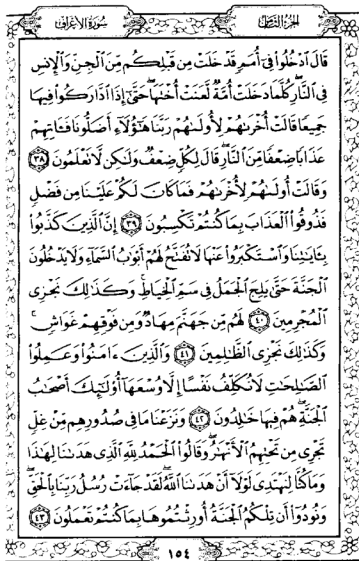 الجزء الثامن
سورة الأعراف
قَالَ ٱدْخُلُوا۟ فِىٓ أُمَمٍ قَدْ خَلَتْ مِن قَبْلِكُم مِّنَ ٱلْجِنِّ وَٱلْإِنسِ
فِى ٱلنَّارِ ۖ كُلَّمَا دَخَلَتْ أُمَّةٌ لَّعَنَتْ أُخْتَهَا ۖ حَتَّىٰٓ إِذَا ٱدَّارَكُوا۟ فِيهَا
جَمِيعًا قَالَتْ أُخْرَىٰهُمْ لِأُولَىٰهُمْ رَبَّنَا هَٰٓؤُلَآءِ أَضَلُّونَا فَـَٔاتِهِمْ
عَذَابًا ضِعْفًا مِّنَ ٱلنَّارِ ۖ قَالَ لِكُلٍّ ضِعْفٌ وَلَٰكِن لَّا تَعْلَمُونَ ٣٨
وَقَالَتْ أُولَىٰهُمْ لِأُخْرَىٰهُمْ فَمَا كَانَ لَكُمْ عَلَيْنَا مِن فَضْلٍ
فَذُوقُوا۟ ٱلْعَذَابَ بِمَا كُنتُمْ تَكْسِبُونَ ٣٩ إِنَّ ٱلَّذِينَ كَذَّبُوا۟
بِـَٔايَٰتِنَا وَٱسْتَكْبَرُوا۟ عَنْهَا لَا تُفَتَّحُ لَهُمْ أَبْوَٰبُ ٱلسَّمَآءِ وَلَا يَدْخُلُونَ
ٱلْجَنَّةَ حَتَّىٰ يَلِجَ ٱلْجَمَلُ فِى سَمِّ ٱلْخِيَاطِ ۚ وَكَذَٰلِكَ نَجْزِى
ٱلْمُجْرِمِينَ ٤٠ لَهُم مِّن جَهَنَّمَ مِهَادٌ وَمِن فَوْقِهِمْ غَوَاشٍ ۚ
وَكَذَٰلِكَ نَجْزِى ٱلظَّٰلِمِينَ ٤١ وَٱلَّذِينَ ءَامَنُوا۟ وَعَمِلُوا۟
ٱلصَّٰلِحَٰتِ لَا نُكَلِّفُ نَفْسًا إِلَّا وُسْعَهَآ أُو۟لَٰٓئِكَ أَصْحَٰبُ
ٱلْجَنَّةِ ۖ هُمْ فِيهَا خَٰلِدُونَ ٤٢ وَنَزَعْنَا مَا فِى صُدُورِهِم مِّنْ غِلٍّ
تَجْرِى مِن تَحْتِهِمُ ٱلْأَنْهَٰرُ ۖ وَقَالُوا۟ ٱلْحَمْدُ لِلَّهِ ٱلَّذِى هَدَىٰنَا لِهَٰذَا
وَمَا كُنَّا لِنَهْتَدِىَ لَوْلَآ أَنْ هَدَىٰنَا ٱللَّهُ ۖ لَقَدْ جَآءَتْ رُسُلُ رَبِّنَا بِٱلْحَقِّ ۖ
وَنُودُوٓا۟ أَن تِلْكُمُ ٱلْجَنَّةُ أُورِثْتُمُوهَا بِمَا كُنتُمْ تَعْمَلُونَ ٤٣
١٥٤